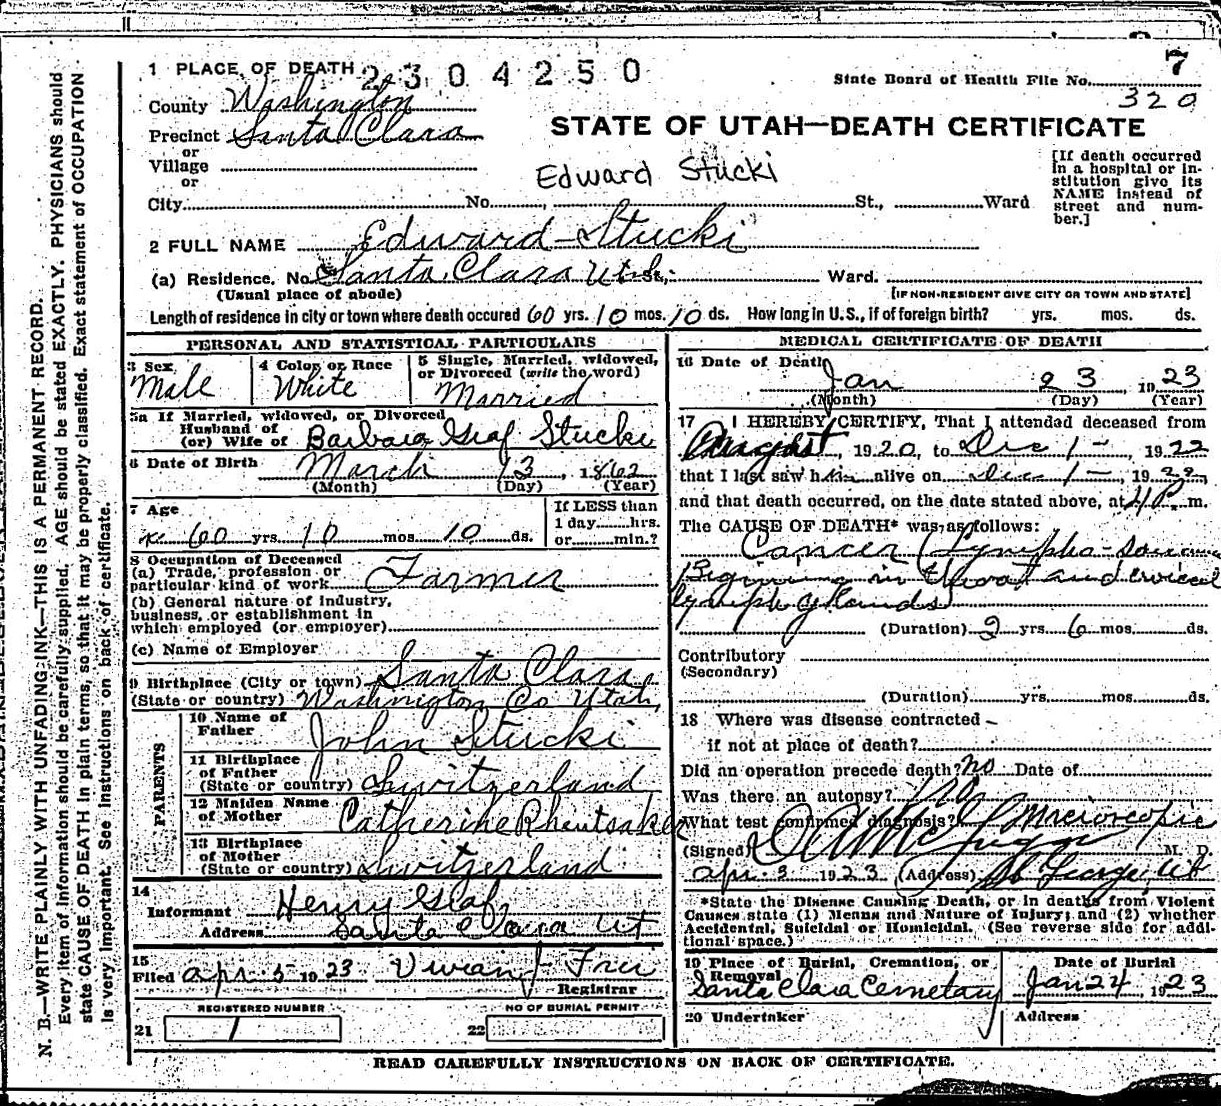 1 PLACE OF DEATH 2304250
State Board of Health File No. 7
320
County Washington
Precinct Santa Clara
or
Village
or
City No. St., Ward
STATE OF UTAH—DEATH CERTIFICATE
Edward Stucki
[If death occurred in a hospital or in-
stitution give its
NAME instead of
street and num-
ber.]
2 FULL NAME Edward Stucki
(a) Residence. No. Santa Clara Utah St., Ward.
(Usual place of abode) [IF NON-RESIDENT GIVE CITY OR TOWN AND STATE]
Length of residence in city or town where death occured 60 yrs. 10 mos. 10 ds. How long in U.S., if of foreign birth? yrs. mos. ds.
PERSONAL AND STATISTICAL PARTICULARS
3 Sex Male
4 Color or Race White
5 Single, Married, widowed,
or Divorced (write the word)
Married
5a If Married, widowed, or Divorced
Husband of
(or) Wife of Barbara Graf Stucki
6 Date of Birth March 13, 1862
(Month) (Day) (Year)
7 Age
60 yrs. 10 mos. 10 ds.
If LESS than
1 day hrs.
or min.?
8 Occupation of Deceased
(a) Trade, profession or
particular kind of work Farmer
(b) General nature of industry,
business, or establishment in
which employed (or employer)
(c) Name of Employer
9 Birthplace (City or town) Santa Clara
(State or country) Washington Co Utah
PARENTS
10 Name of
Father John Stucki
11 Birthplace
of Father
(State or country) Switzerland
12 Maiden Name
of Mother Catherine Rheutsaker
13 Birthplace
of Mother
(State or country) Switzerland
14
Informant Henry Graf
Address Santa Clara Ut
15
Filed apr. 5 1923 Vivian J Frei
Registrar
REGISTERED NUMBER
21 1
NO OF BURIAL PERMIT
22
MEDICAL CERTIFICATE OF DEATH
16 Date of Death
Jan 23, 1923
(Month) (Day) (Year)
17 I HEREBY CERTIFY, That I attended deceased from
August, 1920, to Dec 1-, 1922
that I last saw him alive on Dec 1-, 1922,
and that death occurred, on the date stated above, at 4 P. m.
The CAUSE OF DEATH* was as follows:
Cancer (Lympho-Sarcoma
Begining in throat and cervical
lymph glands)
(Duration) 2 yrs. 6 mos. ds.
Contributory
(Secondary)
(Duration) yrs. mos. ds.
18 Where was disease contracted
if not at place of death?
Did an operation precede death? no Date of
Was there an autopsy? no
What test confirmed diagnosis? Microscopic
(Signed) M. D.
apr. 3 1923 (Address) St George, Ut
*State the Disease Causing Death, or in deaths from Violent
Causes state (1) Means and Nature of Injury; and (2) whether
Accidental, Suicidal or Homicidal. (See reverse side for addi-
tional space.)
19 Place of Burial, Cremation, or
Removal
Santa Clara Cemetary
Date of Burial
Jan 24, 1923
20 Undertaker
Address
READ CAREFULLY INSTRUCTIONS ON BACK OF CERTIFICATE.
N. B.—WRITE PLAINLY WITH UNFADING INK—THIS IS A PERMANENT RECORD.
Every item of information should be carefully supplied. AGE should be stated EXACTLY. PHYSICIANS should
state CAUSE OF DEATH in plain terms, so that it may be properly classified. Exact statement of OCCUPATION
is very important. See instructions on back of certificate.